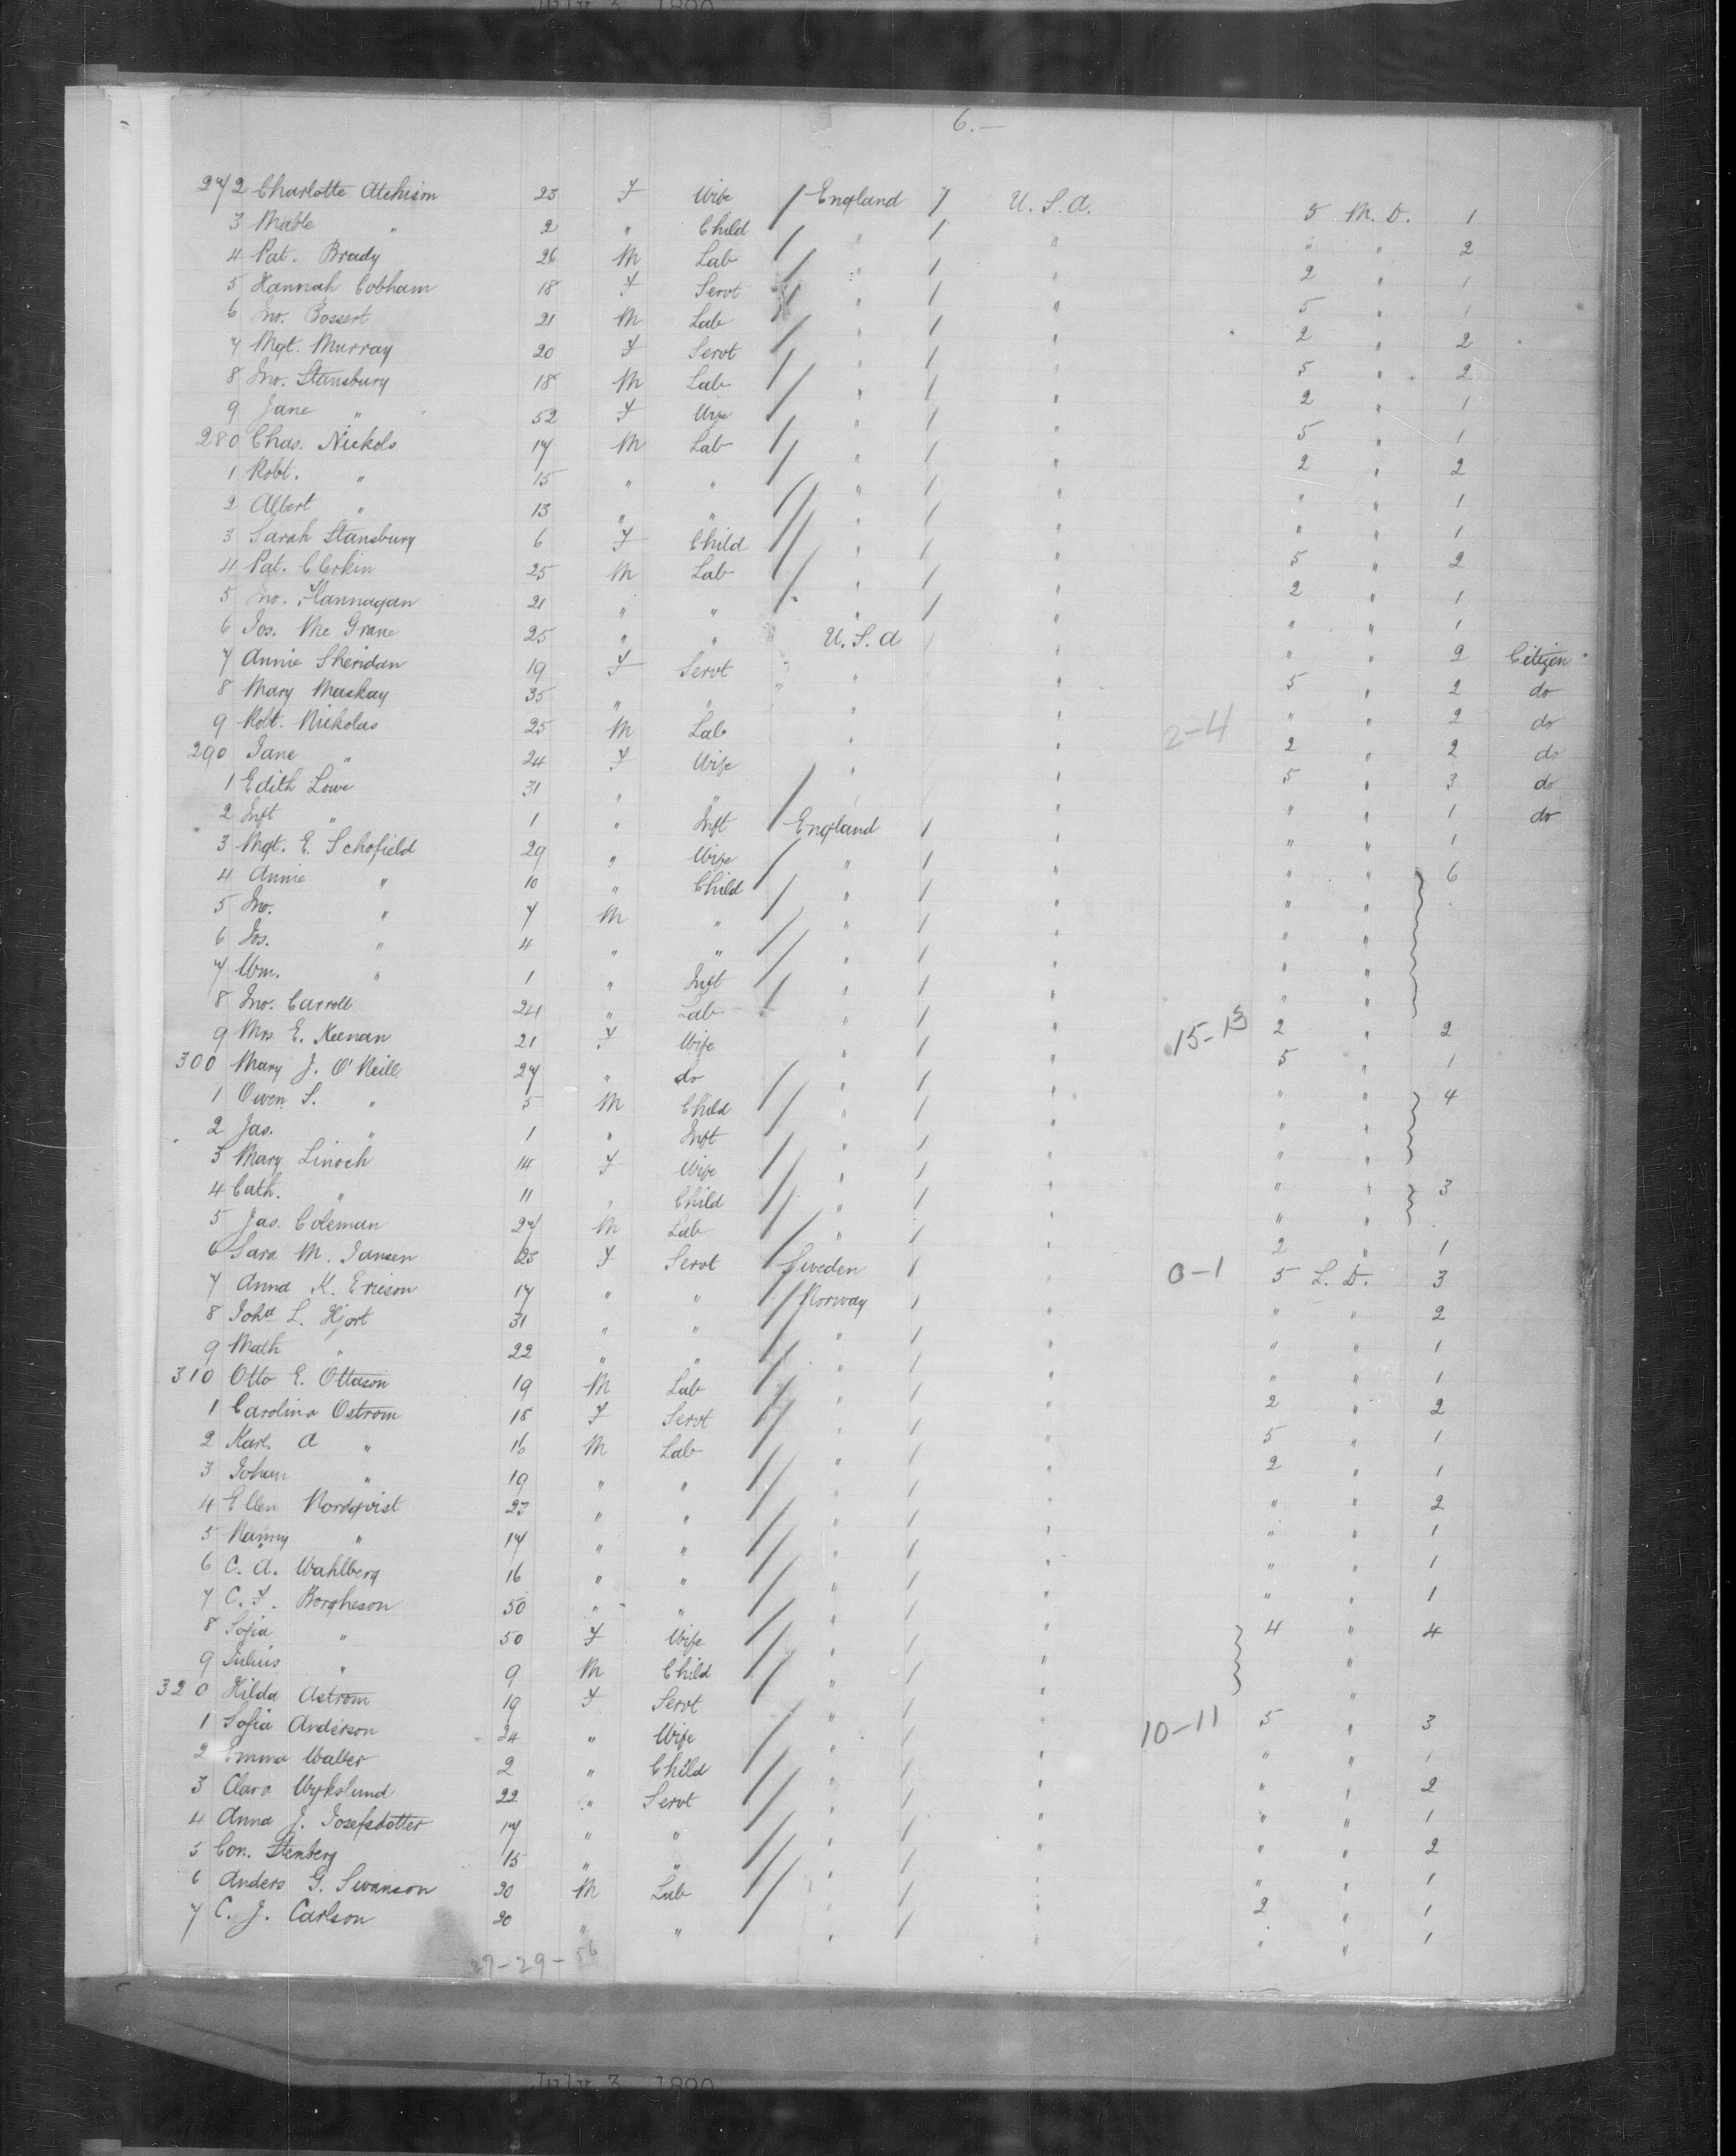 July 3, 1890
6.—
272 Charlotte Atchison 23 F Wife / England / U.S.A. 5 M.D. 1
3 Mable " 2 " Child / " / " " " 2
4 Pat. Brady 26 M Lab / " / " 2 " 1
5 Hannah Cobham 18 F Servt / " / " 5 " 1
6 Jno. Bossert 21 M Lab / " / " 2 " 2
7 Mgt. Murray 20 F Servt / " / " 5 " 2
8 Jno. Stansbury 18 M Lab / " / " 2 " 1
9 Jane " 52 F Wife / " / " 5 " 1
280 Chas. Nickols 17 M Lab / " / " 2 " 2
1 Robt. " 15 " " / " / " " " 1
2 Albert " 13 " " / " / " " " 1
3 Sarah Stansbury 6 F Child / " / " 5 " 2
4 Pat. Clerkin 25 M Lab / " / " 2 " 1
5 Jno. Flannagan 21 " " / " / " " " 1
6 Jos. McGrane 25 " " U.S.A " " " 2 Citizen
7 Annie Sheridan 19 F Servt " " 5 " 2 do
8 Mary Mackay 35 " " " " " " 2 do
9 Robt. Nickolas 25 M Lab " " 2-4 2 " 2 do
290 Jane " 24 F Wife " " 5 " 3 do
1 Edith Lowe 31 " " " " " " 1 do
2 Inft " 1 " Inft / England / " " " 1
3 Mgt. E. Schofield 29 " Wife / " / " " " 6
4 Annie " 10 " Child / " / " " "
5 Jno. " 7 M " / " / " " "
6 Jos. " 4 " " / " / " " "
7 Wm. " 1 " Inft / " / " " "
8 Jno. Carroll 24 " Lab " / " 15-13 2 " 2
9 Mrs. E. Keenan 21 F Wife " / " 5 " 1
300 Mary J. O'Neill 27 " do / " / " " " 4
1 Owen S. " 5 M Child / " / " " "
2 Jas. " 1 " Inft / " / " " "
3 Mary Linoch 14 F Wife / " / " " " 3
4 Cath. " 11 " Child / " / " " "
5 Jas. Coleman 27 M Lab / " / " 2 " 1
6 Sara M. Jansen 23 F Servt / Sweden / " 0-1 5 L.D. 3
7 Anna K. Ericson 17 " " / Norway / " " " 2
8 Joha L. Hjort 31 " " / " / " " " 1
9 Math " 22 " " / " / " " " 1
310 Otto E. Ottason 19 M Lab / " / " 2 " 2
1 Carolina Ostrom 18 F Servt / " / " 5 " 1
2 Karl A " 16 M Lab / " / " 2 " 1
3 Johan " 19 " " / " / " " " 2
4 Ellen Nordqvist 23 " " / " / " " " 1
5 Nanny " 17 " " / " / " " " 1
6 C. A. Wahlberg 16 " " / " / " " " 1
7 C. F. Borgheson 50 " " / " / " 4 " 4
8 Sofia " 50 F Wife / " / " "
9 Julius " 9 M Child / " / " "
320 Hilda Astrom 19 F Servt / " / " 10-11 5 " 3
1 Sofia Anderson 24 " Wife / " / " " " 1
2 Emma Waller 2 " Child / " / " " " 2
3 Clara Wykslund 22 " Servt / " / " " " 1
4 Anna J. Josefsdotter 17 " " / " / " " " 2
5 Cor. Stenberg 15 " " / " / " " " 1
6 Anders G. Swanson 20 M Lab / " / " 2 " 1
7 C. J. Carlson 20 " " / " / " " " 1
27-29-56
July 3, 1890